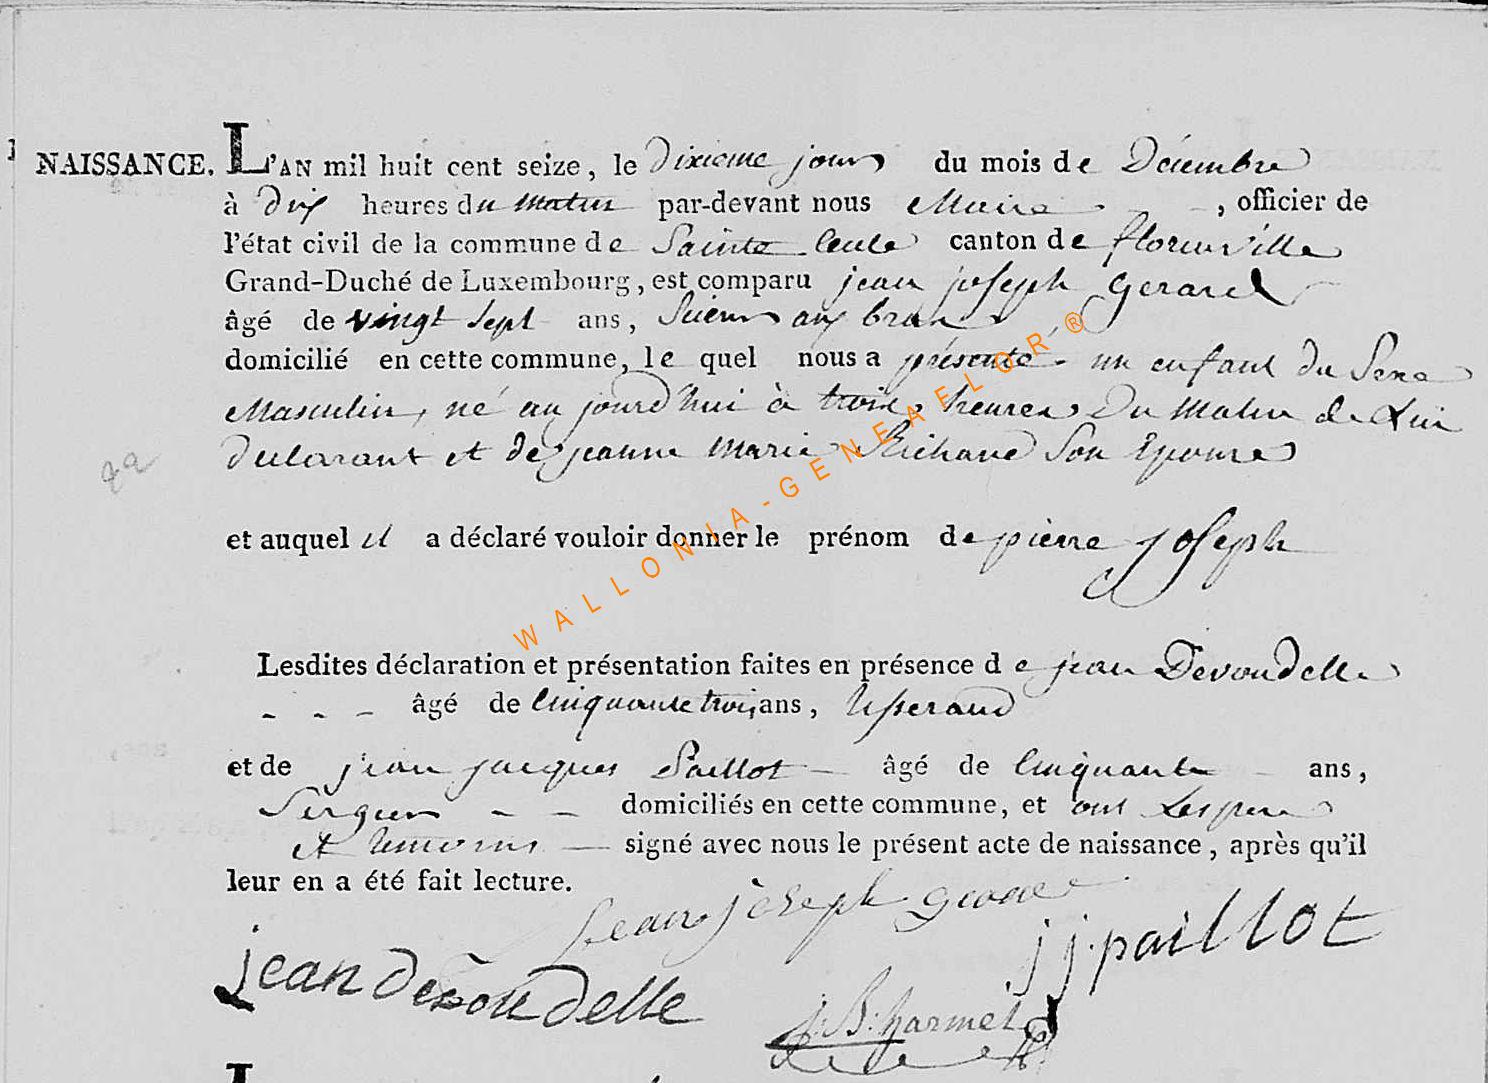 NAISSANCE. L'AN mil huit cent seize, le dixieme jour du mois de Décembre
à dix heures du matin par-devant nous Maire , officier de
l'état civil de la commune de Sainte Cecile canton de florenville
Grand-Duché de Luxembourg, est comparu jean joseph Gerard
âgé de vingt sept ans, Scieur
domicilié en cette commune, le quel nous a présenté un enfant du Sexe
Masculin, né au jourd'hui à trois heures Du Matin de Lui
declarant et de jeanne Marie Richard Son Epouse
et auquel il a déclaré vouloir donner le prénom de pierre joseph
Lesdites déclaration et présentation faites en présence de jean Devoudelle
âgé de Cinquante trois ans, tisserand
et de jean jacques Paillot âgé de Cinquante ans,
Sergier domiciliés en cette commune, et ont Les pere
et temoins signé avec nous le présent acte de naissance, après qu'il
leur en a été fait lecture.
jean joseph gerard
j j paillot
jean devoudelle
J: B: harmel
WALLONIA-GENEAELOR®